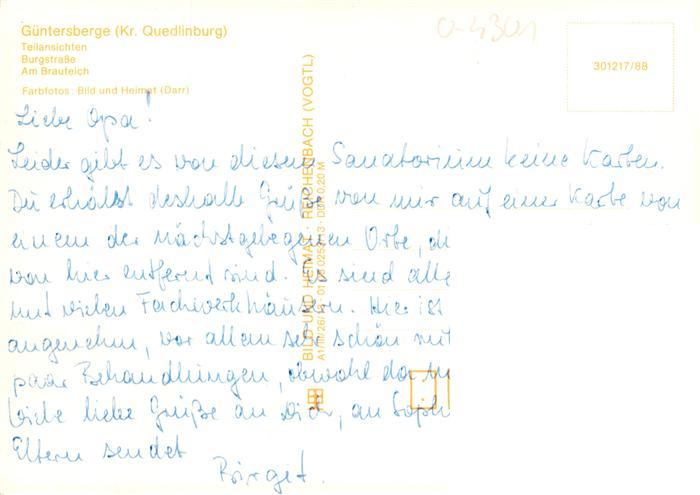 Güntersberge (Kr. Quedlinburg)
Teilansichten
Burgstraße
Am Brauteich
Farbfotos: Bild und Heimat (Darr)
0-4301
301217/88
BILD UND HEIMAT REICHENBACH (VOGTL)
A1/III/26/13 DDR 0,20 M
Liebe Opa!
Leider gibt es von diesem Sanatorium keine Karten.
Du erhälst deshalb Grüße von mir auf einer Karte von
einem der nächstgelegenen Orte, di
von hier entfernt sind. Es sind alle
mit vielen Fachwerkhäusern. Hier ist
angenehm, vor allem sehr schön mit
paar Behandlungen, obwohl da
Viele liebe Grüße an Dich, an Soph
Eltern sendet
Birgit.